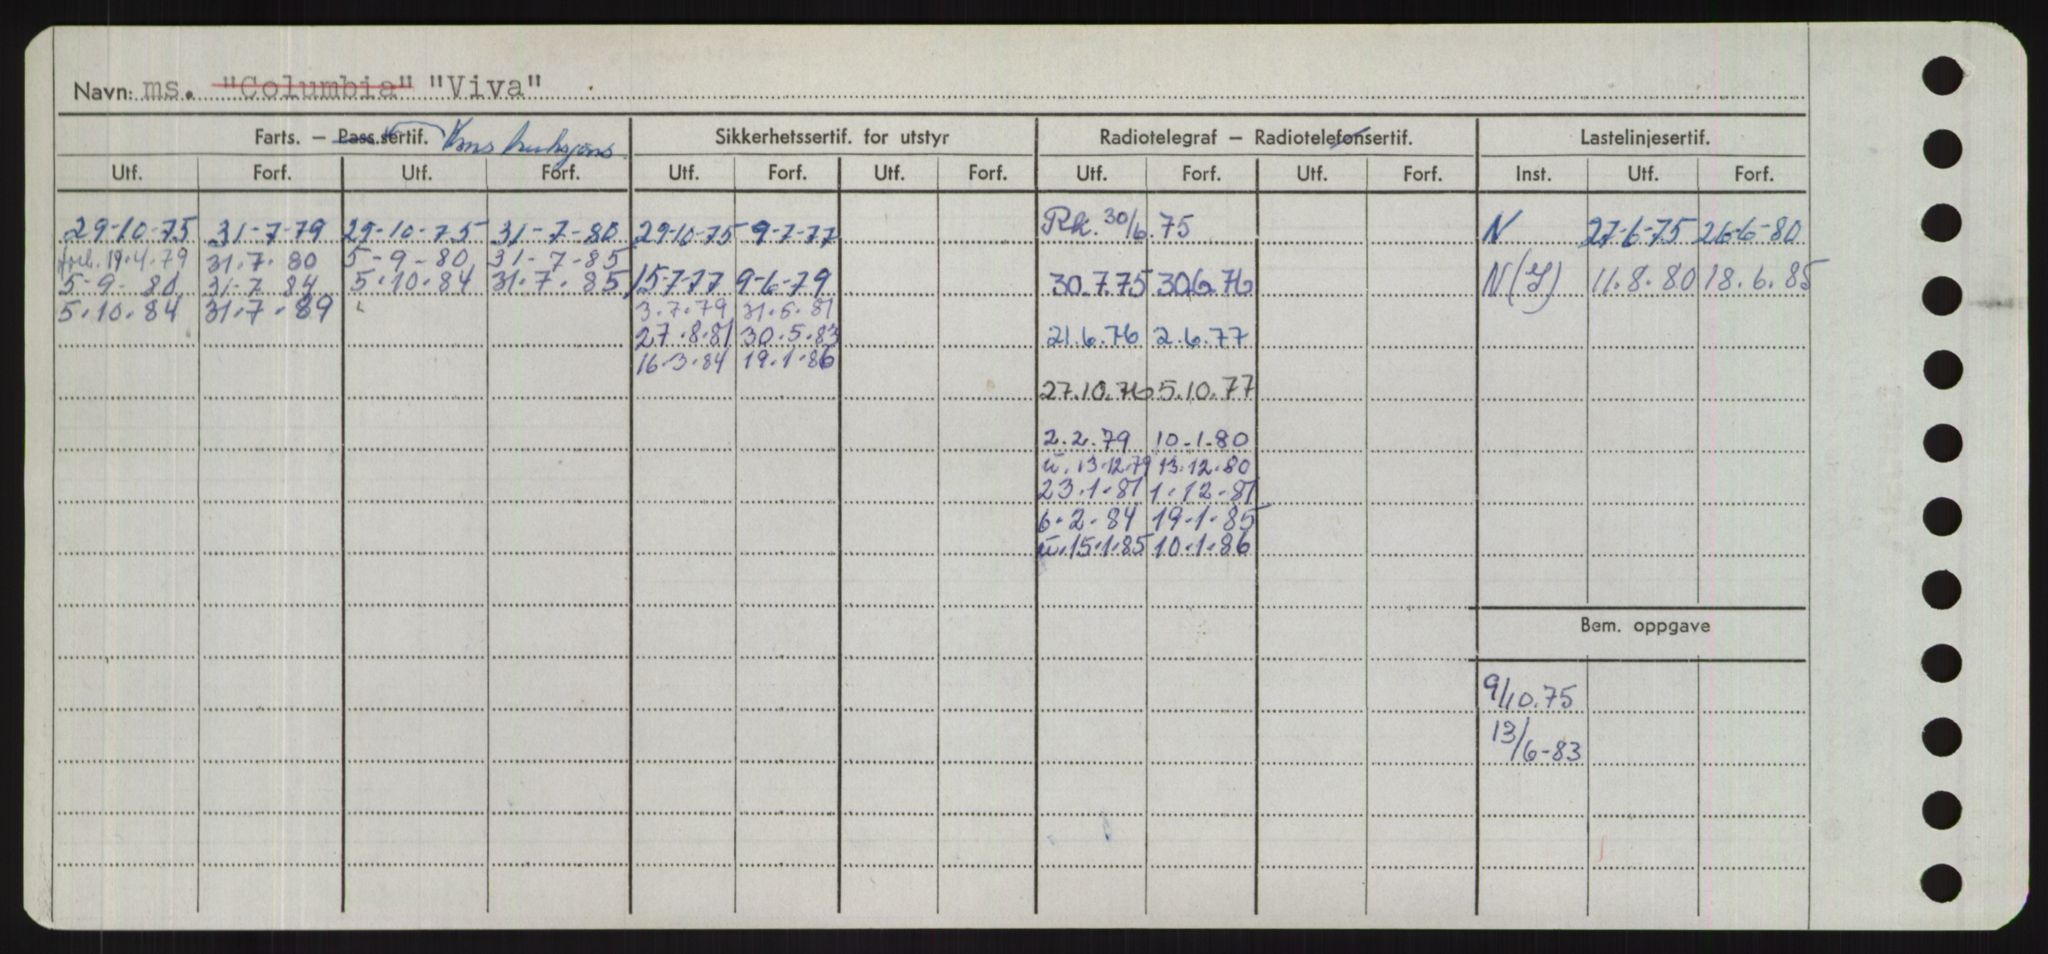 Navn: ms. "Columbia" "Viva"
Farts. – Pass.sertif. Konstruksjons. Sikkerhetssertif. for utstyr Radiotelegraf – Radiotelefonsertif. Lastelinjesertif.
Utf. Forf. Utf. Forf. Utf. Forf. Utf. Forf. Utf. Forf. Utf. Forf. Inst. Utf. Forf.
29-10-75 31-7-79 29-10-75 31-7-80 29-10-75 9-7-77 Rk. 30/6.75 N 27-6-75 26-6-80
forl. 19.4.79 31.7.80 5-9-80 31-7-85
5-9-80 31-7.84 5.10.84 31.7.85 15-7-77 9-6-79 30.7.75 30.6.76 N(Y) 11.8.80 18.6.85
5.10.84 31.7.89 3.7.79 31.5.81
27.8.81 30.5.83 21.6.76 2.6.77
16.3.84 19.1.86
27.10.76 5.10.77
2.2.79 10.1.80
u. 13.12.79 13.12.80
23.1.81 1.12.81
6.2.84 19.1.85
u. 15.1.85 10.1.86
Bem. oppgave
9/10.75
13/6-83